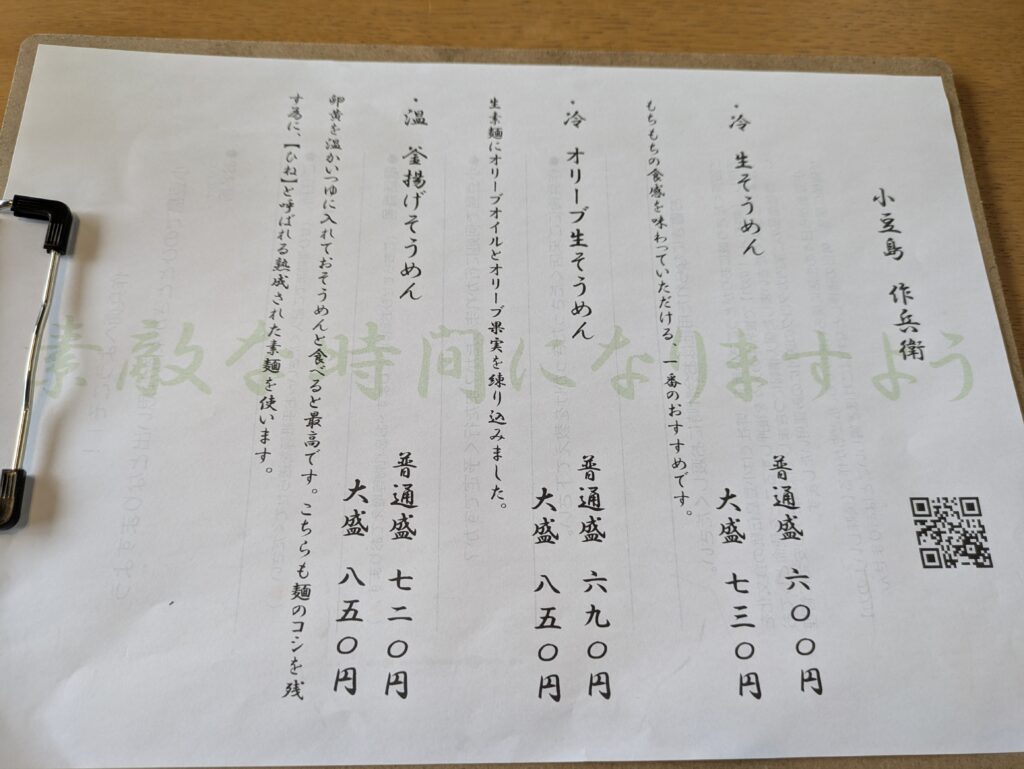 小豆島 作兵衛
・冷 生そうめん
普通盛 六〇〇円
大盛 七三〇円
もちもちの食感を味わっていただける、一番のおすすめです。
・冷 オリーブ生そうめん
普通盛 六九〇円
大盛 八五〇円
生素麺にオリーブオイルとオリーブ果実を練り込みました。
・温 釜揚げそうめん
普通盛 七二〇円
大盛 八五〇円
卵黄を温かいつゆに入れておそうめんと食べると最高です。こちらも麺のコシを残
す為に、【ひね】と呼ばれる熟成された素麺を使います。
素敵な時間になりますよう